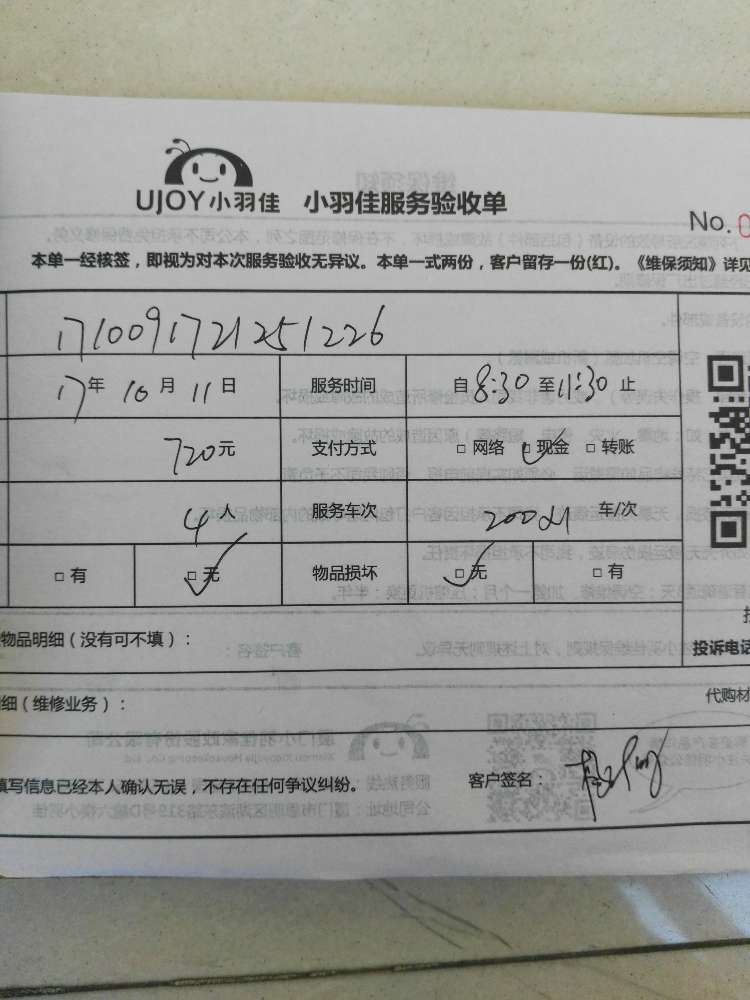 UJOY小羽佳 小羽佳服务验收单
No.0
本单一经核签，即视为对本次服务验收无异议。本单一式两份，客户留存一份(红)。《维保须知》详见
171009172125 1226
17年 10 月 11 日 服务时间 自 8:30 至 11:30 止
720元 支付方式 □ 网络 □ 现金 □ 转账
4人 服务车次 车/次
□ 有 □ 无 物品损坏 □ 无 □ 有
物品明细（没有可不填）：
投诉电话
细（维修业务）：
代购材
填写信息已经本人确认无误，不存在任何争议纠纷。 客户签名：